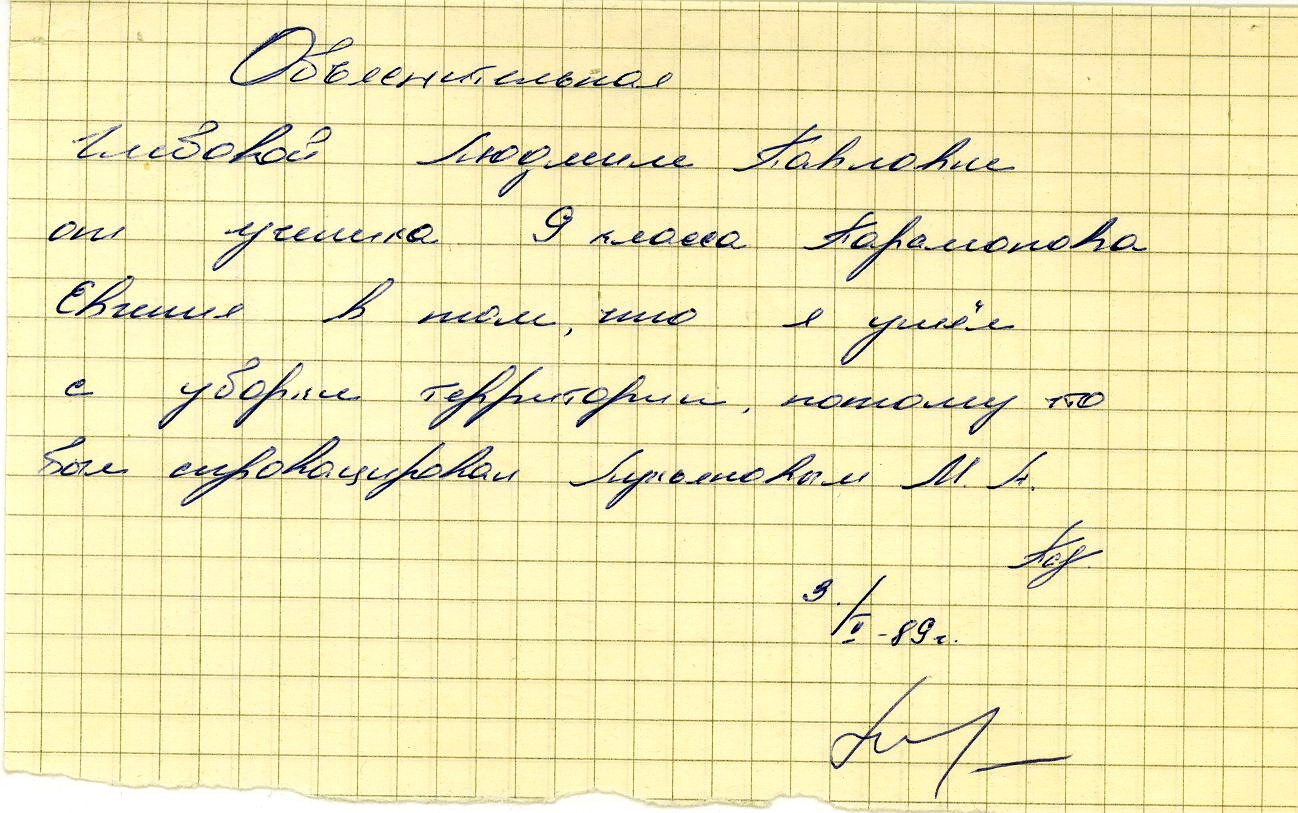 Объяснительная
Глебовой Людмиле Павловне
от ученика 9 класса Парамонова
Евгения в том, что я ушёл
с уборки территории, потому что
был спровацирован Лукьяновым М. А.
Пар
3./V -89г.